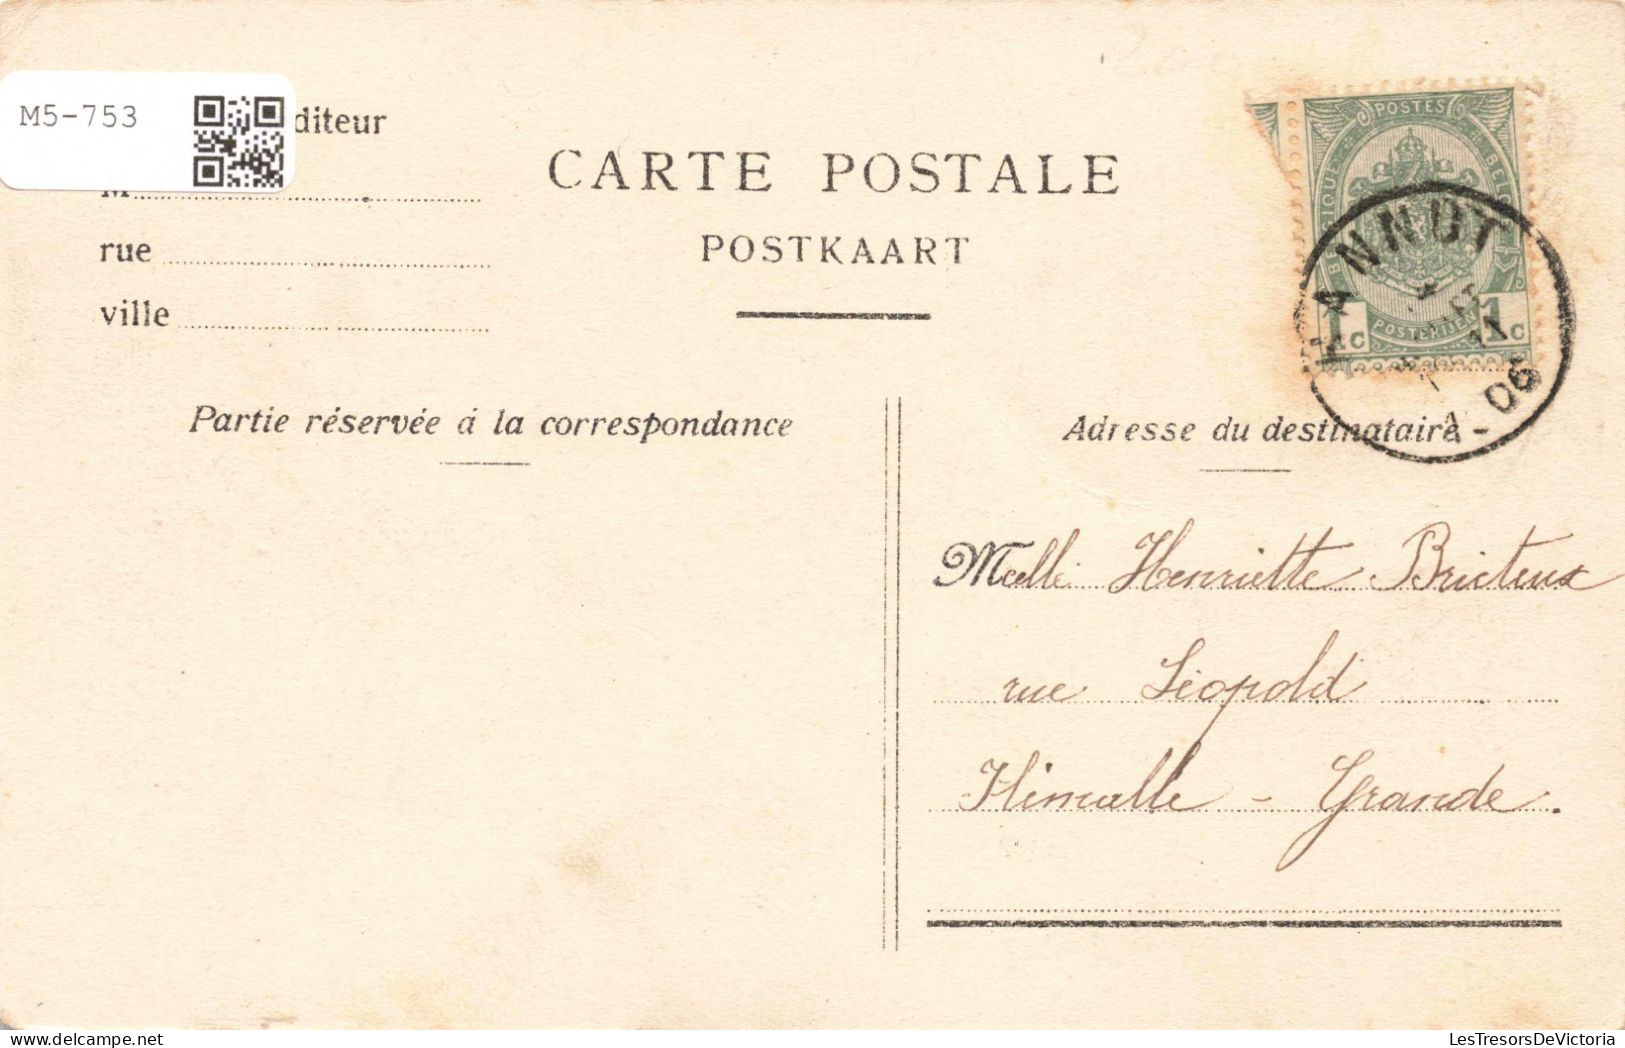 M5-753
diteur
CARTE POSTALE
POSTKAART
M
rue
ville
POSTES
BELGIQUE
BELGIE
1c POSTERIJEN 1c
HANNUT
11
06
Partie réservée à la correspondance
Adresse du destinataire
Melle Henriette Bricteux
rue Léopold
Hemalle - Grande.
LesTresorsDeVictoria